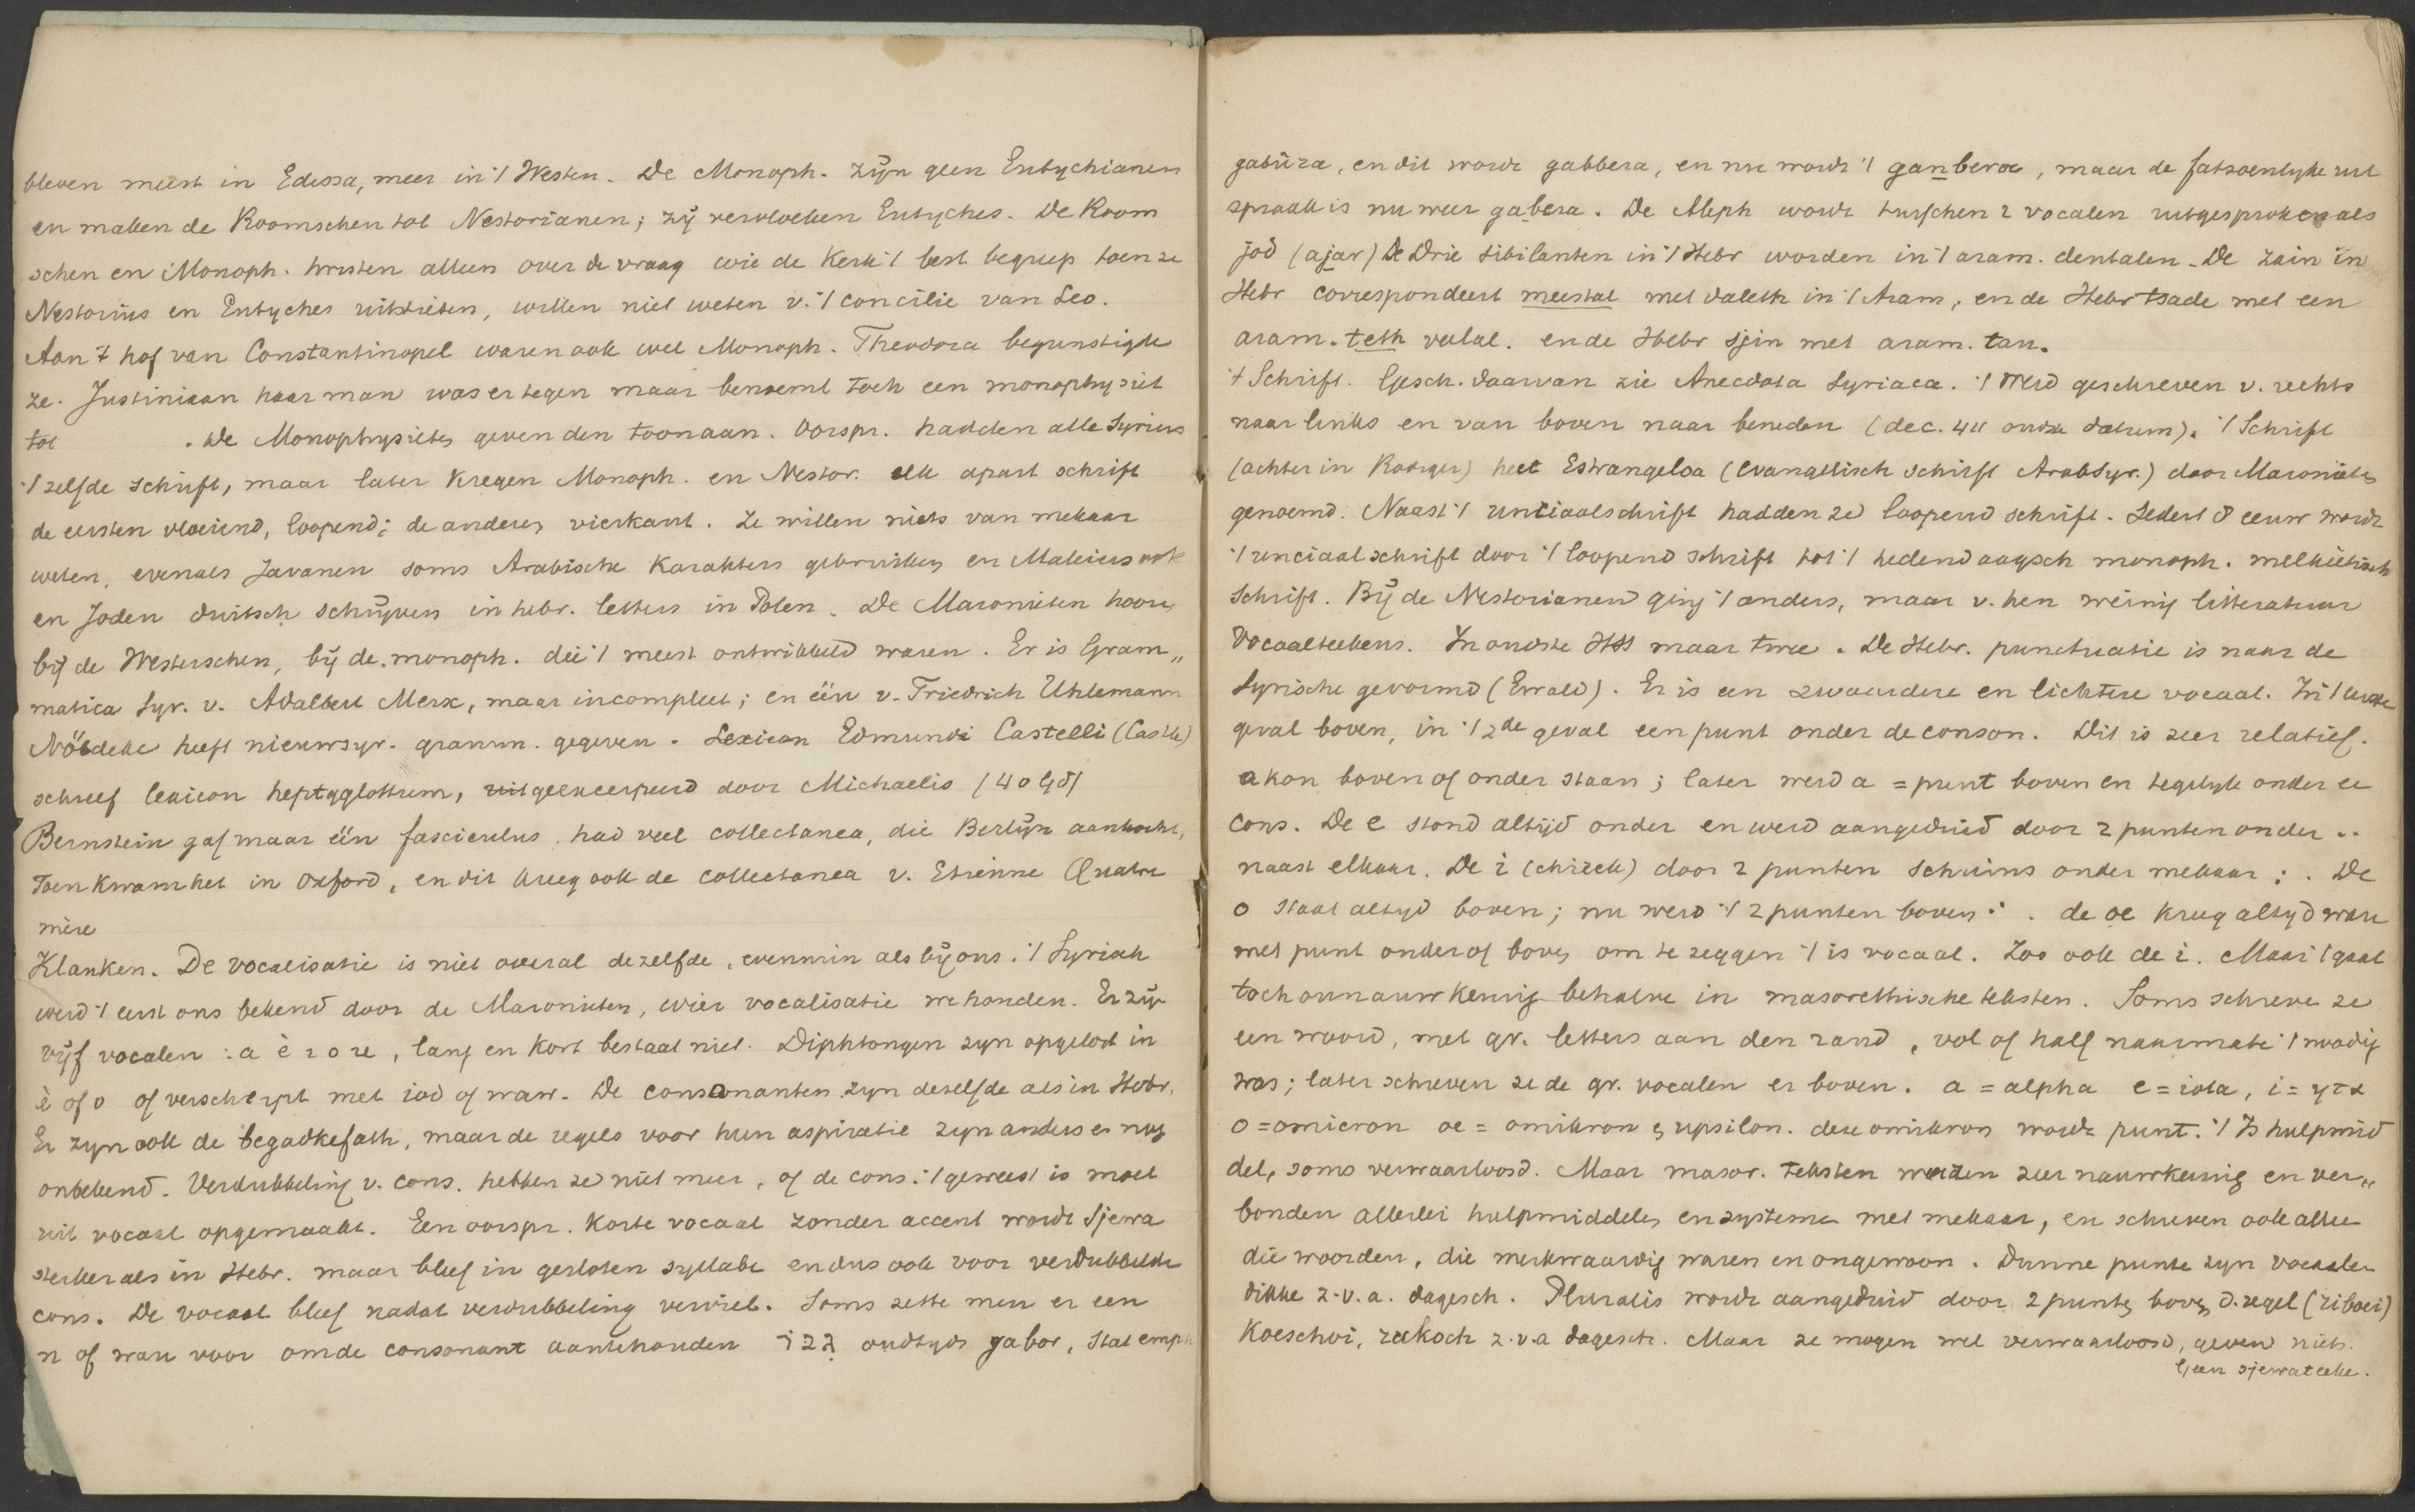 bleven meest in Edessa, meer in 't Westen. De Monoph. zijn geen Eutychianen
en maken de Roomschen tot Nestorianen; zij vervloeken Eutyches. De Room
schen en Monoph. twisten alleen over de vraag wie de Kerk 't best begreep toen ze
Nestorius en Eutyches uitstieten, willen niet weten v. 't concilie van Leo.
Aan 't hof van Constantinopel waren ook veel Monoph. Theodora begunstigde
ze. Justiniaan haar man was er tegen maar benoemt toch een monophysiet
tot . De Monophysieten geven den toon aan. Oorspr. hadden alle Syriers
't zelfde schrift, maar later kregen Monoph. en Nestor. elk apart schrift
de eersten vloeiend, loopend; de anderen vierkant. Ze willen niets van mekaar
weten, evenals Javanen soms Arabische karakters gebruiken en Maleiers ook
en Joden duitsch schrijven in hebr. letters in Polen. De Maronieten hooren
bij de Westerschen, bij de monoph. die 't meest ontwikkeld waren. Er is Gram„
matica Syr. v. Adalbert Merx, maar incompleet; en één v. Friedrich Uhlemann
Nöldeke heeft nieuwsyr. gramm. gegeven. Lexicon Edmundi Castelli (Castle)
schreef lexicon heptaglottum, uitgeexcerpeerd door Michaelis
Bernstein gaf maar één fasciculus, had veel collectanea, die Berlijn aankocht,
Toen kwam het in Oxford, en dit kreeg ook de collectanea v. Etienne Quatre
mère
Klanken. De vocalisatie is niet overal dezelfde, evenmin als bij ons. 't Syrisch
werd 't eerst ons bekend door de Maronieten, wier vocalisatie we houden. Er zijn
vijf vocalen : a è i o u, lang en kort bestaat niet. Diphtongen zyn opgelost in
è of o of verscherpt met iod of waw. De consonanten zyn dezelfde als in Hebr.
Er zyn ook de begadkefath, maar de regels voor hun aspiratie zyn anders en nog
onbekend. Verdubbeling v. cons. hebben ze niet meer, of de cons. 't geweest is moet
uit vocaal opgemaakt. Een oorspr. korte vocaal zonder accent wordt Sjewa
sterker als in Hebr. maar bleef in gesloten syllabe en dus ook voor verdubbelde
cons. De vocaal bleef nadat verdubbeling verviel. Soms zette men er een
n of waw voor om de consonant aantehouden גבר oudtyds gabor, stat emph
gabūra, en dit wordt gabbera, en nu wordt 't ganbera, maar de fatsoenlyke uit
spraak is nu weer gabera. De Aleph wordt tusschen 2 vocalen uitgesproken als
jod (ajar) De Drie sibilanten in 't Hebr worden in 't aram. dentalen. De zain in
Hebr correspondeert meestal met daleth in 't Aram, en de Hebr tsade met een
aram. teth velal. en de Hebr sjin met aram. tau.
't Schrift. Gesch. daarvan zie Anecdota Syriaca. 't Werd geschreven v. rechts
naar links en van boven naar beneden (dec. 411 oudste datum). 't Schrift
(achter in Roediger) heet Estrangeloa (evangelisch schrift Arab Syr.) door Maronieten
genoemd. Naast 't unciaalschrift hadden ze loopend schrift. Sedert 8 eeuw wordt
't unciaalschrift door 't loopend schrift tot 't hedendaagsch monoph. melkietisch
schrift. Bij de Nestorianen ging 't anders, maar v. hen weinig litteratuur
Vocaalteekens. In oudste HSS maar twee. De Hebr. punctuatie is naar de
Syrische gevormd (Ewald). Er is een zwaardere en lichtere vocaal. In 't eerste
geval boven, in 't 2de geval een punt onder de conson. Dit is zeer relatief.
a kon boven of onder staan; later werd a = punt boven en tegelyk onder de
cons. De e stond altijd onder en werd aangeduid door 2 punten onder ..
naast elkaar. De i (chirek) door 2 punten schuins onder mekaar : . De
o staat altyd boven; nu werd 't 2 punten boven : . de oe kreeg altyd waw
met punt onder of boven om te zeggen 't is vocaal. Zoo ook de i. Maar 't gaat
toch onnauwkeurig behalve in masorethische teksten. Soms schreven ze
een woord, met gr. letters aan den rand, vol of half naarmate 't noodig
was; later schreven ze de gr. vocalen er boven. a = alpha e = iota, i = ητα
o = omicron oe = omikron en upsilon. deze omikron wordt punt. 't Is hulpmid
del, soms verwaarloosd. Maar masor. teksten werden zeer nauwkeurig en ver„
bonden allerlei hulpmiddelen en systeme met mekaar, en schreven ook alleen
die woorden, die merkwaardig waren en ongewoon. Dunne punte zyn vocalen
dikke z.v.a. dagesch. Pluralis wordt aangeduid door 2 punten boven d. regel (ribooi)
Koeschoi, roekoch z.v.a dagesch. Maar ze mogen wel verwaarloosd, geven niets.
Geen sjewateeken.